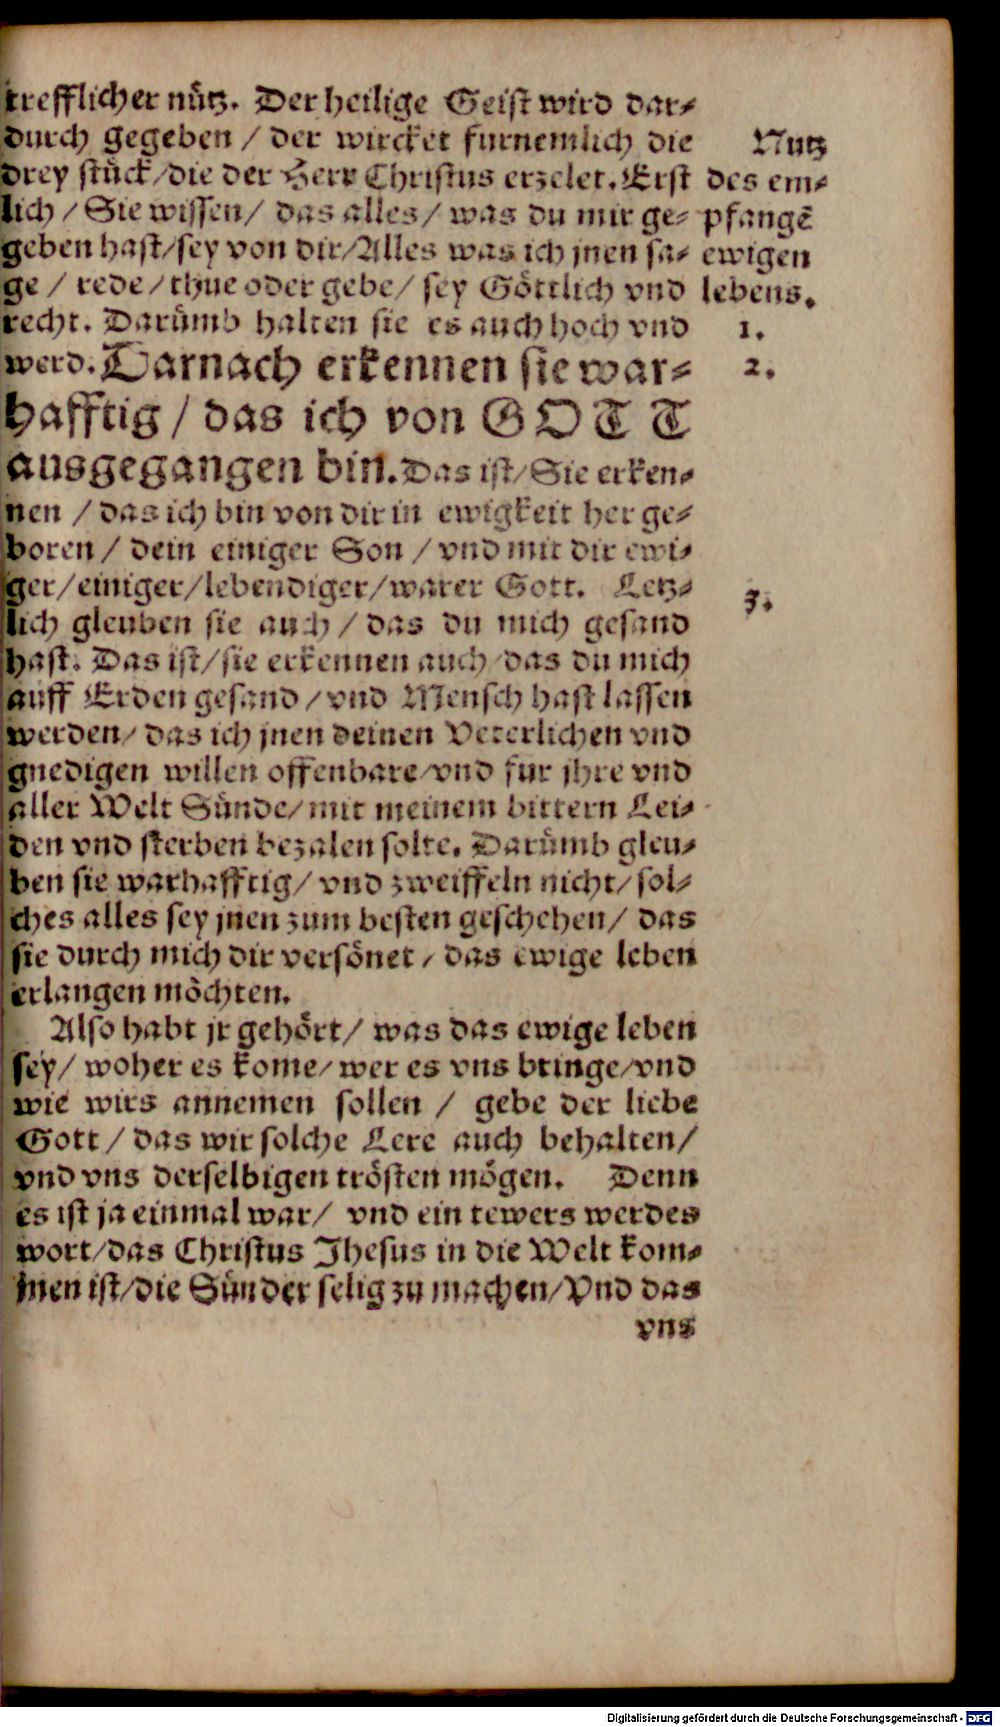 trefflicher nütz. Der heilige Geist wird dar-
durch gegeben / der wircket furnemlich die
drey stück/die der Herr Christus erzelet. Erst
lich / Sie wissen/ das alles/ was du mir ge-
geben hast/sey von dir/Alles was ich jnen sa-
ge / rede/thue oder gebe/ sey Göttlich vnd
recht. Darümb halten sie es auch hoch vnd
werd. Darnach erkennen sie war-
hafftig / das ich von GOTT
ausgegangen bin. Das ist/Sie erken-
nen / das ich bin von dir in ewigkeit her ge-
boren / dein einiger Son / vnd mit dir ewi-
ger/einiger/lebendiger/warer Gott. Letz-
lich gleuben sie auch / das du mich gesand
hast. Das ist/sie erkennen auch/das du mich
auff Erden gesand / vnd Mensch hast lassen
werden/ das ich jnen deinen Veterlichen vnd
gnedigen willen offenbare/vnd fur jhre vnd
aller Welt Sünde/mit meinem bittern Lei-
den vnd sterben bezalen solte. Darümb gleu-
ben sie warhafftig/ vnd zweiffeln nicht/ sol-
ches alles sey jnen zum besten geschehen/ das
sie durch mich dir versönet/ das ewige leben
erlangen möchten.
Also habt jr gehört/ was das ewige leben
sey/ woher es kome/wer es vns bringe/vnd
wie wirs annemen sollen / gebe der liebe
Gott / das wir solche Lere auch behalten/
vnd vns derselbigen trösten mögen. Denn
es ist ja einmal war/ vnd ein tewers werdes
wort/das Christus Jhesus in die Welt kom-
men ist/die Sünder selig zu machen/Vnd das
vns
Nutz
des em-
pfangē
ewigen
lebens.
1.
2.
3.
Digitalisierung gefördert durch die Deutsche Forschungsgemeinschaft - DFG